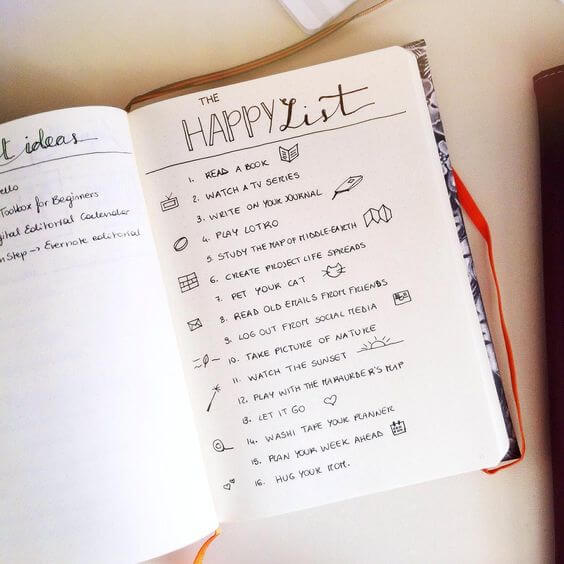 t ideas
ello
Toolbox for Beginners
gital Editorial Calendar
nStep → Evernote editorial
THE
HAPPY List
1. READ A BOOK
2. WATCH A TV SERIES
3. WRITE ON YOUR JOURNAL
4. PLAY LOTRO
5. STUDY THE MAP OF MIDDLE-EARTH
6. CREATE PROJECT LIFE SPREADS
7. PET YOUR CAT
8. READ OLD EMAILS FROM FRIENDS
9. LOG OUT FROM SOCIAL MEDIA
10. TAKE PICTURE OF NATURE
11. WATCH THE SUNSET
12. PLAY WITH THE MARAURDER'S MAP
13. LET IT GO
14. WASHI TAPE YOUR PLANNER
15. PLAN YOUR WEEK AHEAD
16. HUG YOUR MOM.